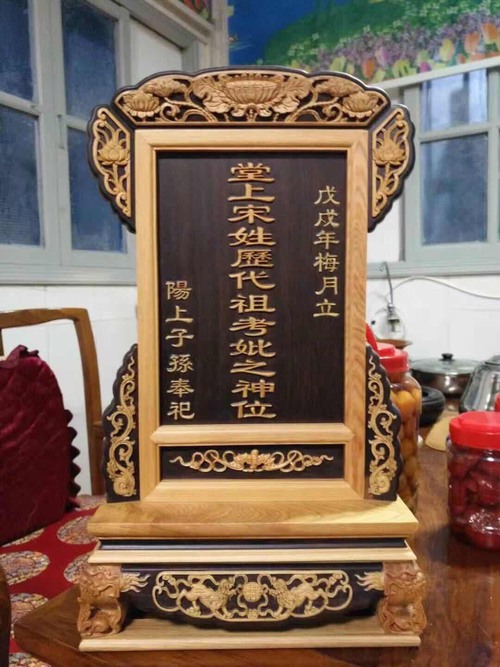 戊戌年梅月立
堂上宋姓歷代祖考妣之神位
陽上子孫奉祀